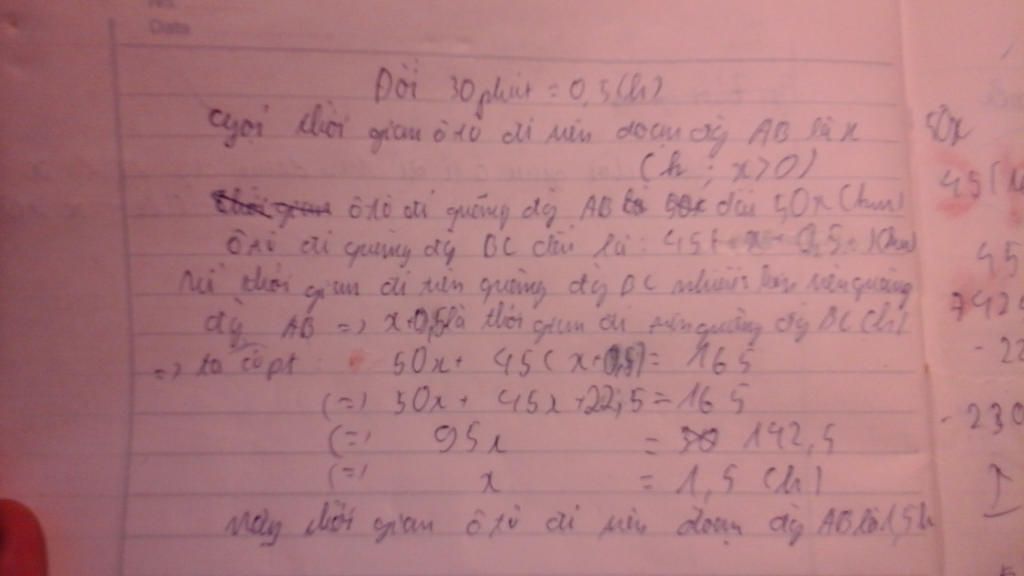 No.
Date
Đổi 30 phút = 0,5 (h)
Gọi thời gian ô tô đi trên đoạn đg AB là x
(h ; x>0)
ô tô đi quãng đg AB dài 50x (km)
ô tô đi quãng đg BC dài là : 45
thời gian đi trên quãng đg BC nhiều hơn trên quãng
đg AB => x+0,5 là thời gian đi trên quãng đg BC (h)
=> ta có pt : 50x + 45 ( x+0,5) = 165
(=) 50x + 45x +22,5 = 165
(=) 95x = 142,5
(=) x = 1,5 (h)
Vậy thời gian ô tô đi trên đoạn đg AB là 1,5h
50x
45
45
- 22
- 230